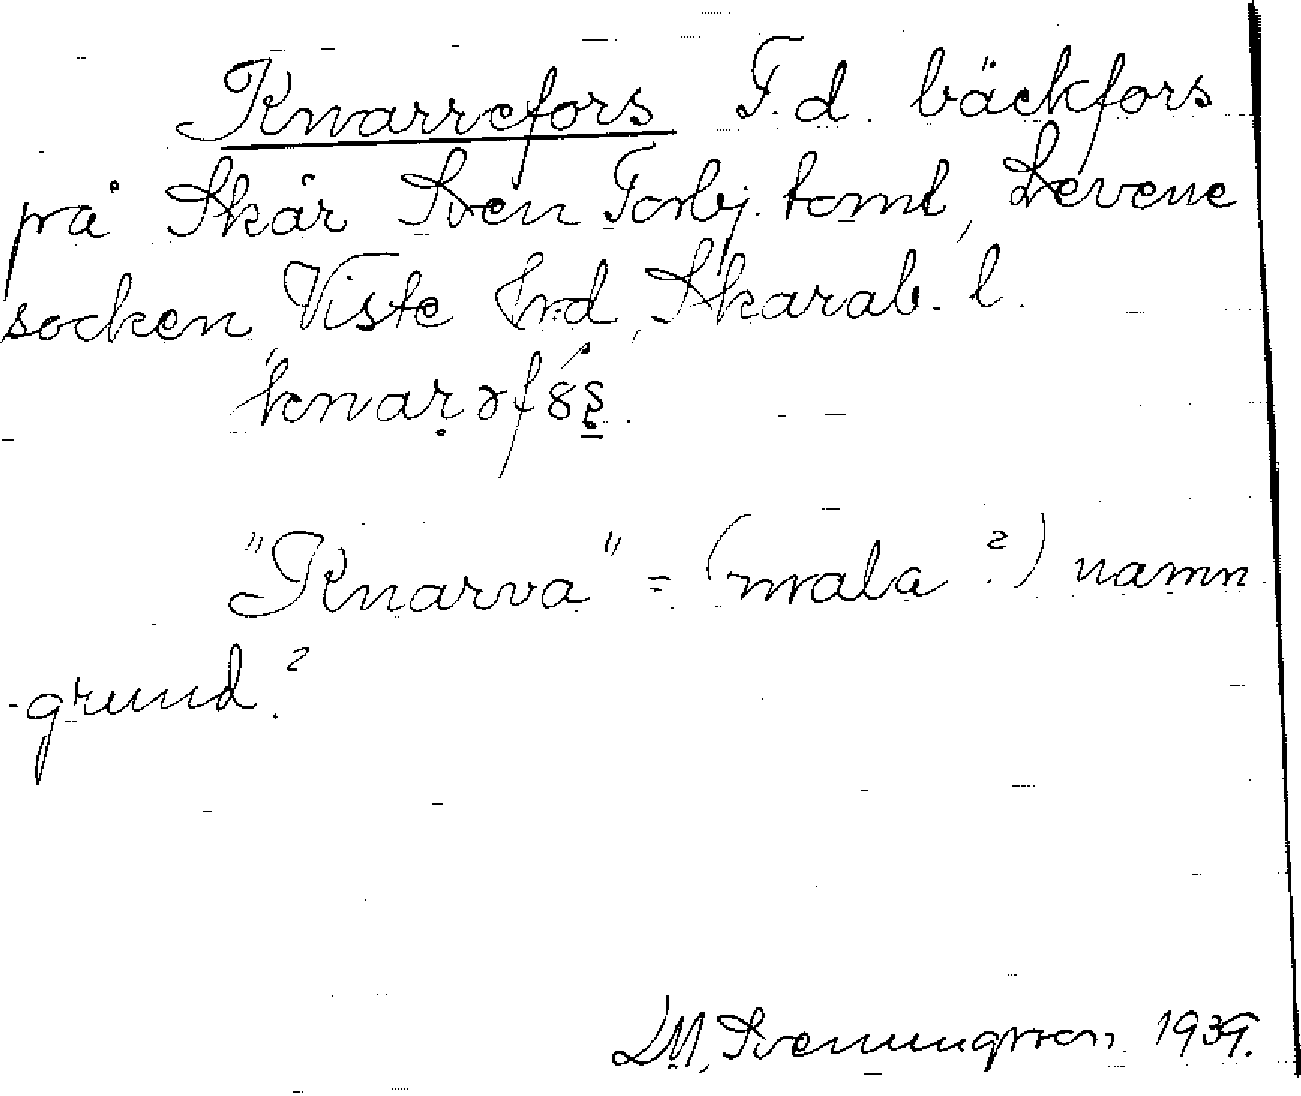 Knarrefors F.d. bäckfors
på Skår Sven Torbj. tomt, Levene
socken, Viste hrd, Skarab. l.
"Knarva" = (mala ?) namn
-grund?
L M. Svenungsson 1939.